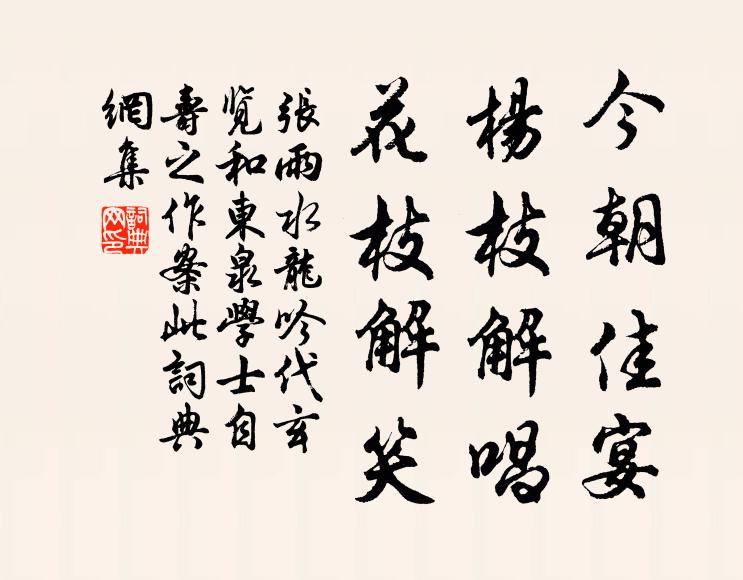 今朝佳宴
楊枝解唱
花枝解笑
張雨水龍吟代玄
覽和東泉學士自
壽之作案此詞典
網集
詞典
网印